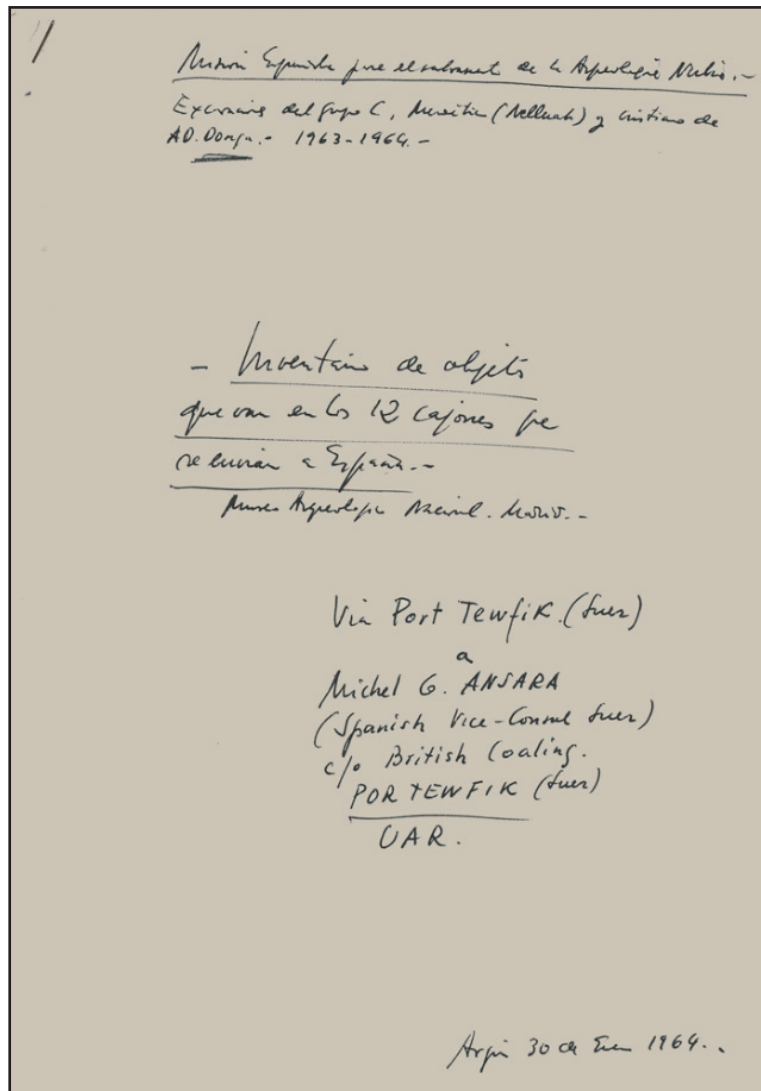 Misión Española para el salvamento de la Arqueología Nubia.-
Excavaciones del grupo C, Meroítico (Nelluah) y cristiano de
AD. Donga.- 1963-1964.-
- Inventario de objetos
que van en los 12 cajones que
se envían a España.-
Museo Arqueológico Nacional. Madrid.-
Via Port Tewfik. (Suez)
a
Michel G. ANSARA
(Spanish Vice-Consul Suez)
c/o British Coaling.
POR TEWFIK (Suez)
UAR.
Argin 30 de Enero 1964.-